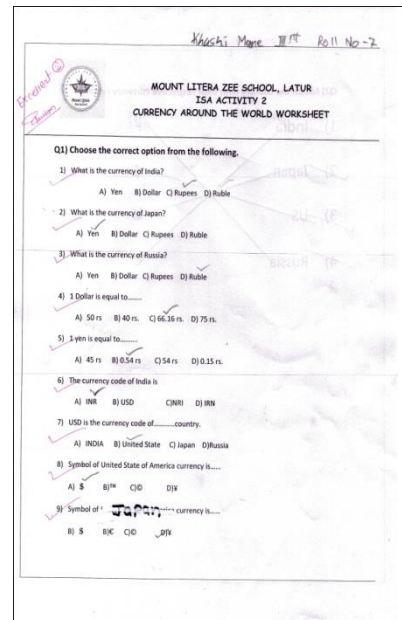 Khushi Mane IIIrd Roll No - 7
Excellent
MOUNT LITERA ZEE SCHOOL, LATUR
ISA ACTIVITY 2
CURRENCY AROUND THE WORLD WORKSHEET
Q1) Choose the correct option from the following.
1) What is the currency of India?
A) Yen B) Dollar C) Rupees D) Ruble
2) What is the currency of Japan?
A) Yen B) Dollar C) Rupees D) Ruble
3) What is the currency of Russia?
A) Yen B) Dollar C) Rupees D) Ruble
4) 1 Dollar is equal to.......
A) 50 rs B) 40 rs. C) 66.16 rs. D) 75 rs.
5) 1 yen is equal to.........
A) 45 rs B) 0.54 rs C) 54 rs D) 0.15 rs.
6) The currency code of India is
A) INR B) USD C)NRI D) IRN
7) USD is the currency code of...........country.
A) INDIA B) United State C) Japan D)Russia
8) Symbol of United State of America currency is.....
A) $ B)™ C)© D)¥
9) Symbol of Japan currency is.....
B) $ B)€ C)© D)¥